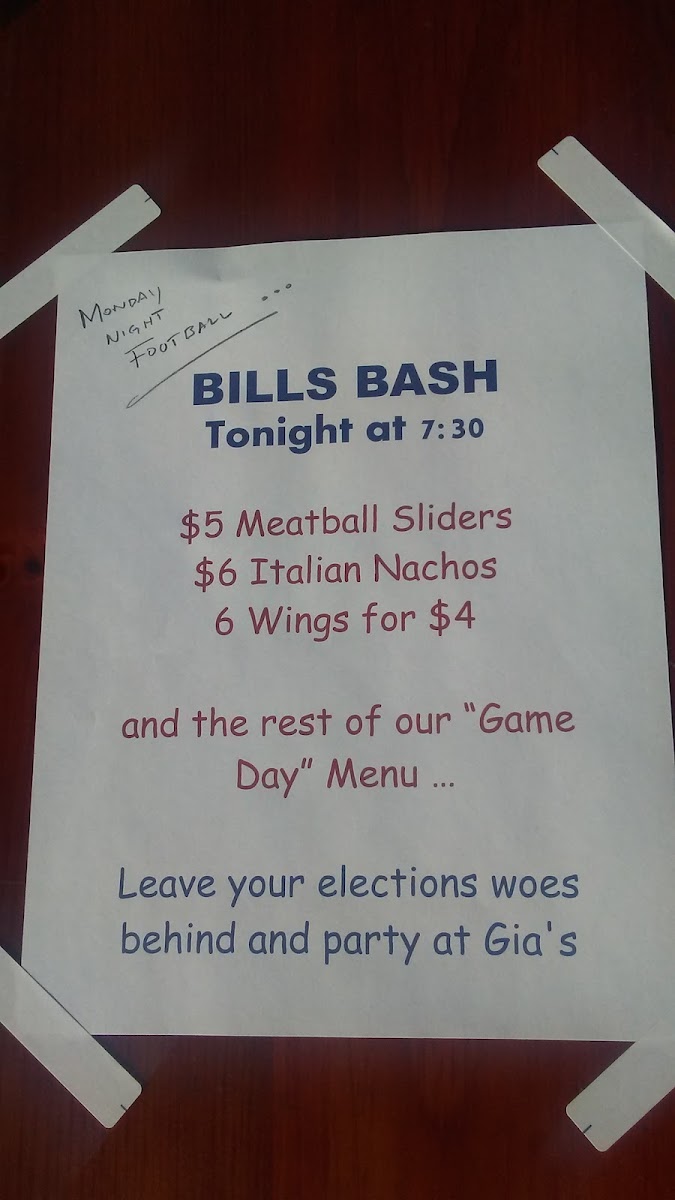 MONDAY
NIGHT
FOOTBALL ...
BILLS BASH
Tonight at 7:30
$5 Meatball Sliders
$6 Italian Nachos
6 Wings for $4
and the rest of our “Game
Day” Menu ...
Leave your elections woes
behind and party at Gia's